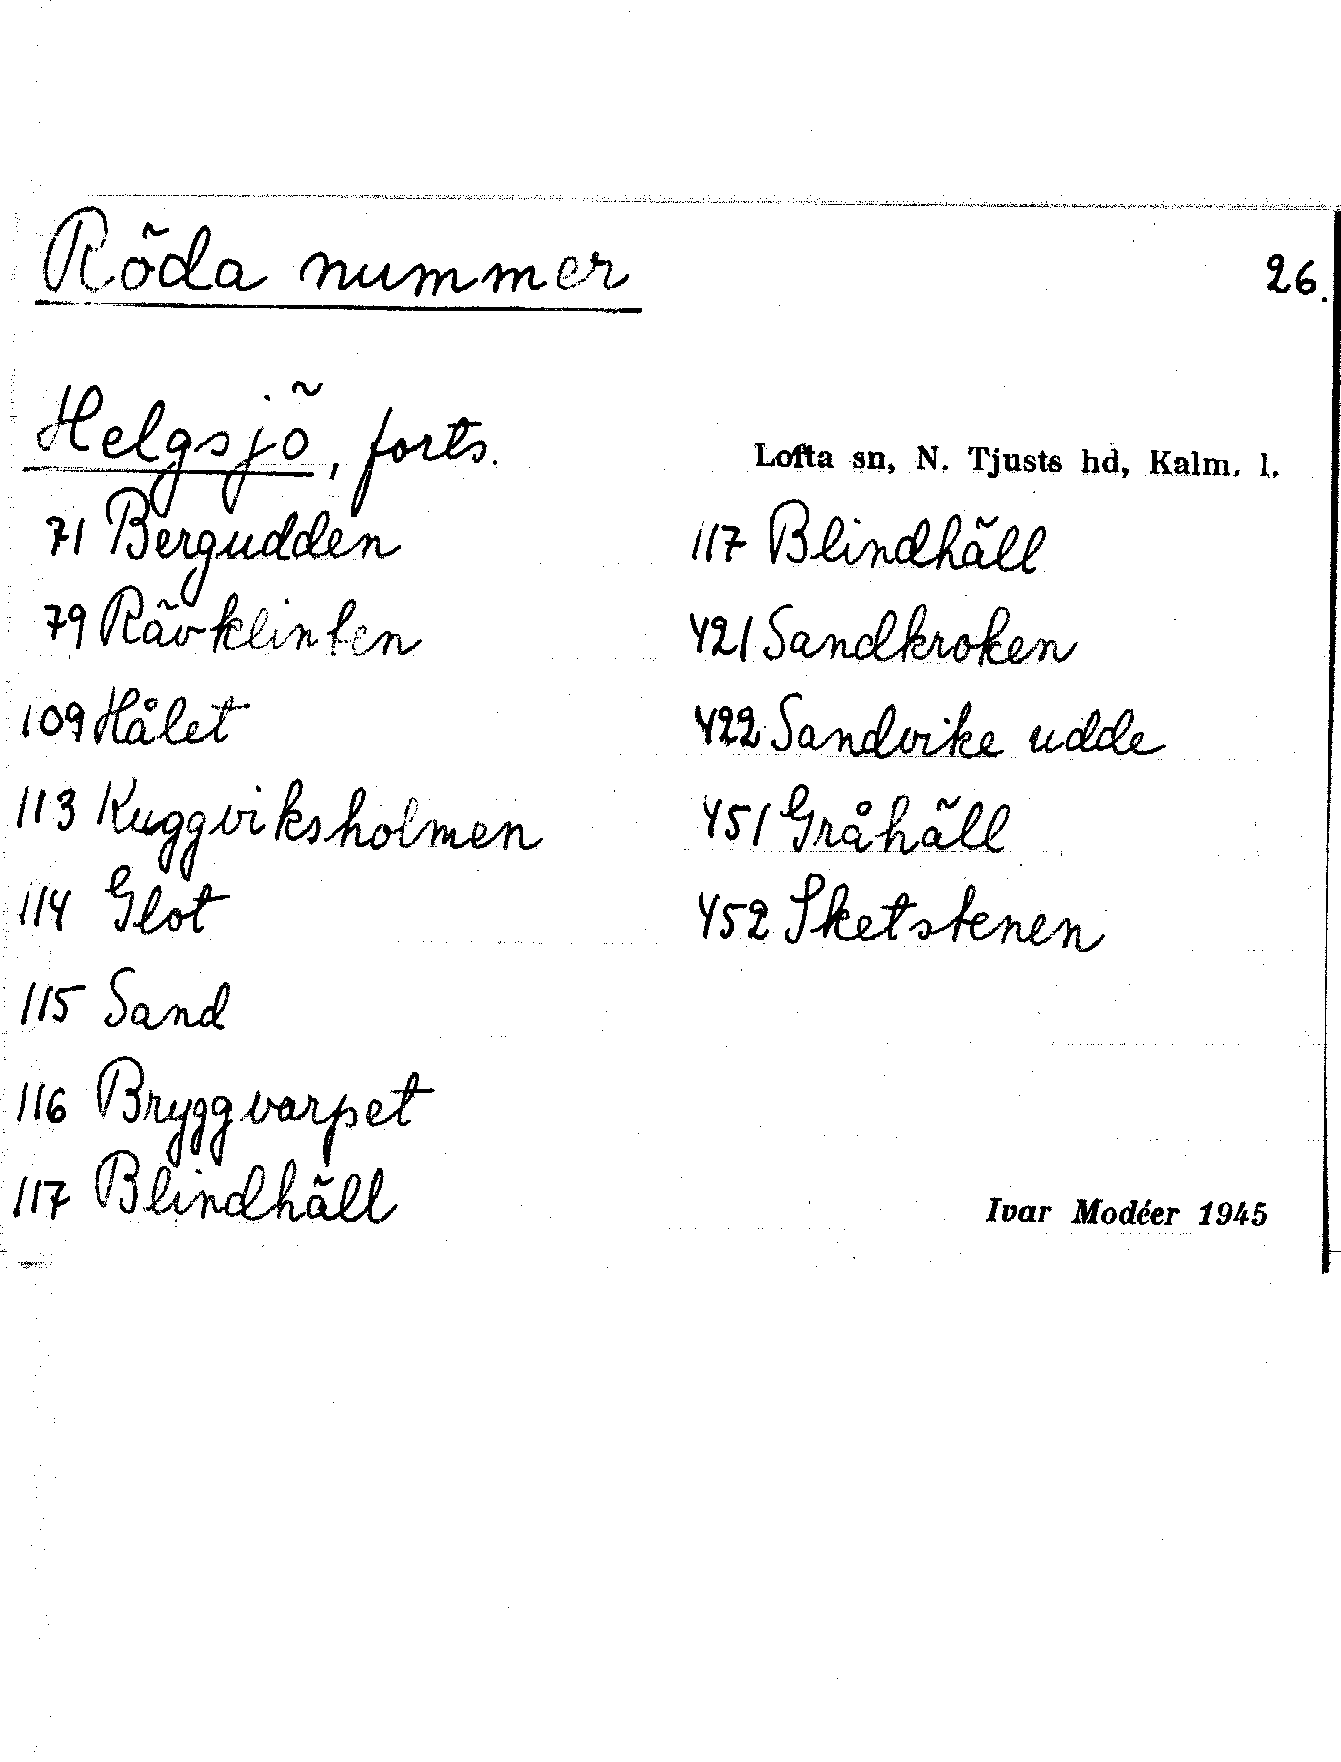 Röda nummer
26.
Helgsjö, forts.
Lofta sn, N. Tjusts hd, Kalm. l.
71 Bergudden
79 Rävklinten
109 Hålet
113 Kuggviksholmen
114 Glot
115 Sand
116 Bryggvarpet
117 Blindhäll
117 Blindhäll
421 Sandkroken
422 Sandvike udde
451 Gråhäll
452 Sketstenen
Ivar Modéer 1945